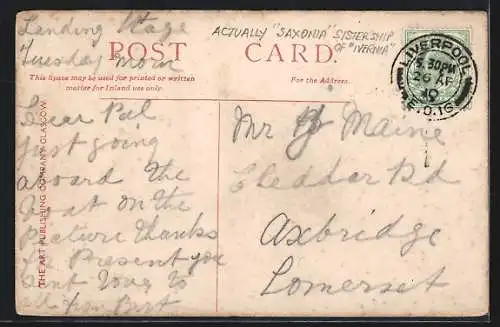 Landing Stage
Tuesday Morn
ACTUALLY "SAXONIA" SISTERSHIP
OF "IVERNIA"
POST CARD.
This space may be used for printed or written
matter for Inland use only.
For the Address.
LIVERPOOL
5.30PM
26 AP
10
E.D.1G
Dear Pal
Just going
aboard the
Boat on the
Picture thanks
for Present you
sent Love to
all from Bert
Mr Maine
Cheddar Rd
Axbridge
Somerset
THE ART PUBLISHING COMPANY GLASGOW